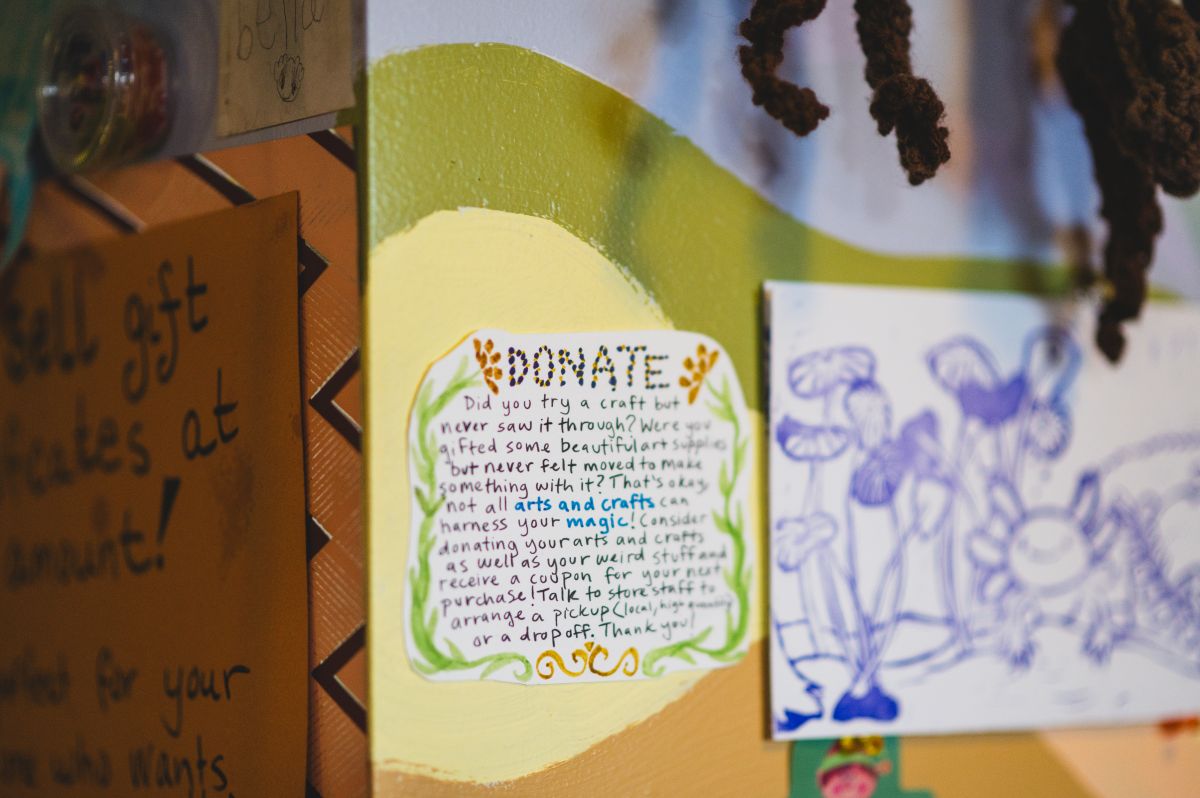 bella
sell gift
ficates at
amount!
for your
who wants
DONATE
Did you try a craft but
never saw it through? Were you
gifted some beautiful art supplies
but never felt moved to make
something with it? That's okay,
not all arts and crafts can
harness your magic! Consider
donating your arts and crafts
as well as your weird stuff and
receive a coupon for your next
purchase! Talk to store staff to
arrange a pickup (local, high quantity)
or a drop off. Thank you!